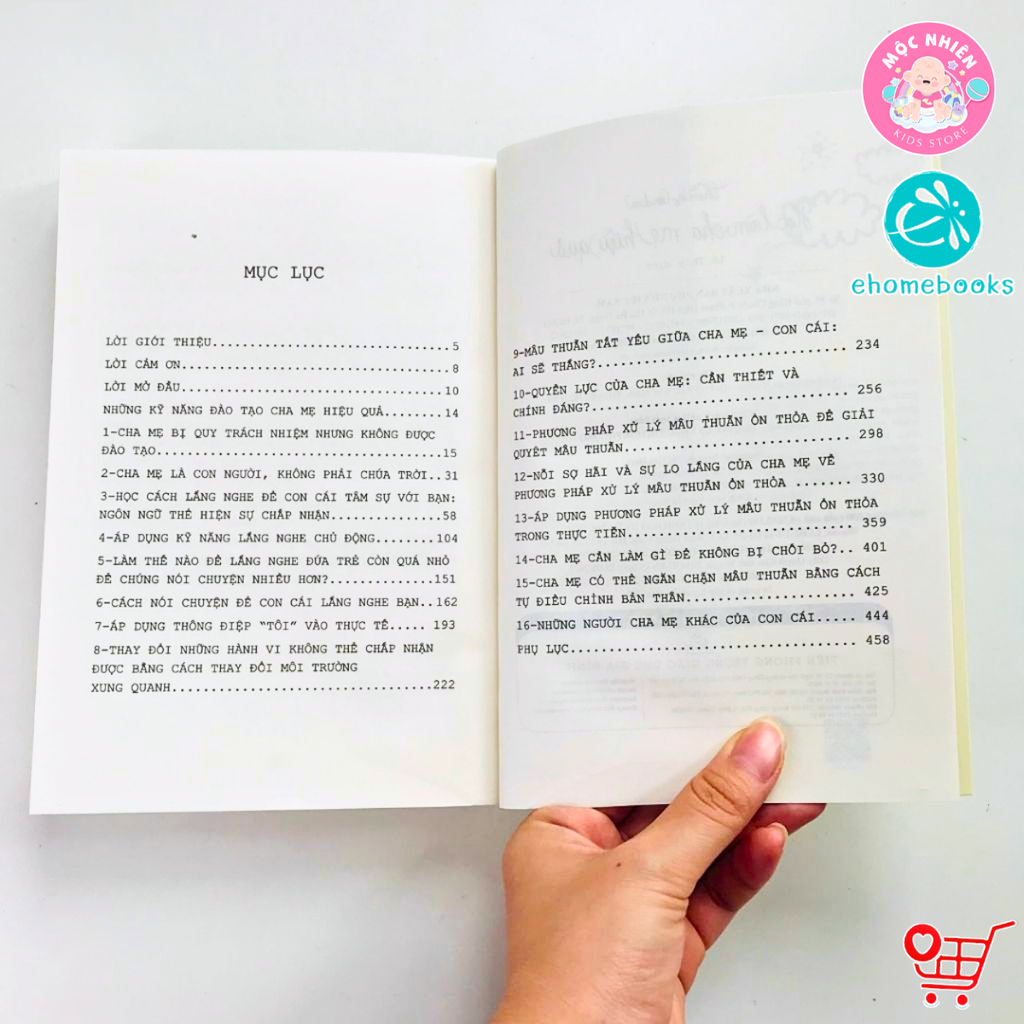 MỘC NHIÊN
KIDS STORE
ehomebooks
MỤC LỤC
LỜI GIỚI THIỆU................................5
LỜI CẢM ƠN....................................8
LỜI MỞ ĐẦU...................................10
NHỮNG KỸ NĂNG ĐÀO TẠO CHA MẸ HIỆU QUẢ........14
1-CHA MẸ BỊ QUY TRÁCH NHIỆM NHƯNG KHÔNG ĐƯỢC
ĐÀO TẠO.......................................15
2-CHA MẸ LÀ CON NGƯỜI, KHÔNG PHẢI CHÚA TRỜI..31
3-HỌC CÁCH LẮNG NGHE ĐỂ CON CÁI TÂM SỰ VỚI BẠN:
NGÔN NGỮ THỂ HIỆN SỰ CHẤP NHẬN...............58
4-ÁP DỤNG KỸ NĂNG LẮNG NGHE CHỦ ĐỘNG........104
5-LÀM THẾ NÀO ĐỂ LẮNG NGHE ĐỨA TRẺ CÒN QUÁ NHỎ
ĐỂ CHÚNG NÓI CHUYỆN NHIỀU HƠN?..............151
6-CÁCH NÓI CHUYỆN ĐỂ CON CÁI LẮNG NGHE BẠN..162
7-ÁP DỤNG THÔNG ĐIỆP “TÔI” VÀO THỰC TẾ..... 193
8-THAY ĐỔI NHỮNG HÀNH VI KHÔNG THỂ CHẤP NHẬN
ĐƯỢC BẰNG CÁCH THAY ĐỔI MÔI TRƯỜNG
XUNG QUANH...................................222
9-MÂU THUẪN TẤT YẾU GIỮA CHA MẸ - CON CÁI:
AI SẼ THẮNG?............................... 234
10-QUYỀN LỰC CỦA CHA MẸ: CẦN THIẾT VÀ
CHÍNH ĐÁNG?................................ 256
11-PHƯƠNG PHÁP XỬ LÝ MÂU THUẪN ÔN THỎA ĐỂ GIẢI
QUYẾT MÂU THUẪN............................ 298
12-NỖI SỢ HÃI VÀ SỰ LO LẮNG CỦA CHA MẸ VỀ
PHƯƠNG PHÁP XỬ LÝ MÂU THUẪN ÔN THỎA ....... 330
13-ÁP DỤNG PHƯƠNG PHÁP XỬ LÝ MÂU THUẪN ÔN THỎA
TRONG THỰC TIỄN............................ 359
14-CHA MẸ CẦN LÀM GÌ ĐỂ KHÔNG BỊ CHỐI BỎ?.. 401
15-CHA MẸ CÓ THỂ NGĂN CHẶN MÂU THUẪN BẰNG CÁCH
TỰ ĐIỀU CHỈNH BẢN THÂN..................... 425
16-NHỮNG NGƯỜI CHA MẸ KHÁC CỦA CON CÁI..... 444
PHỤ LỤC.................................... 458